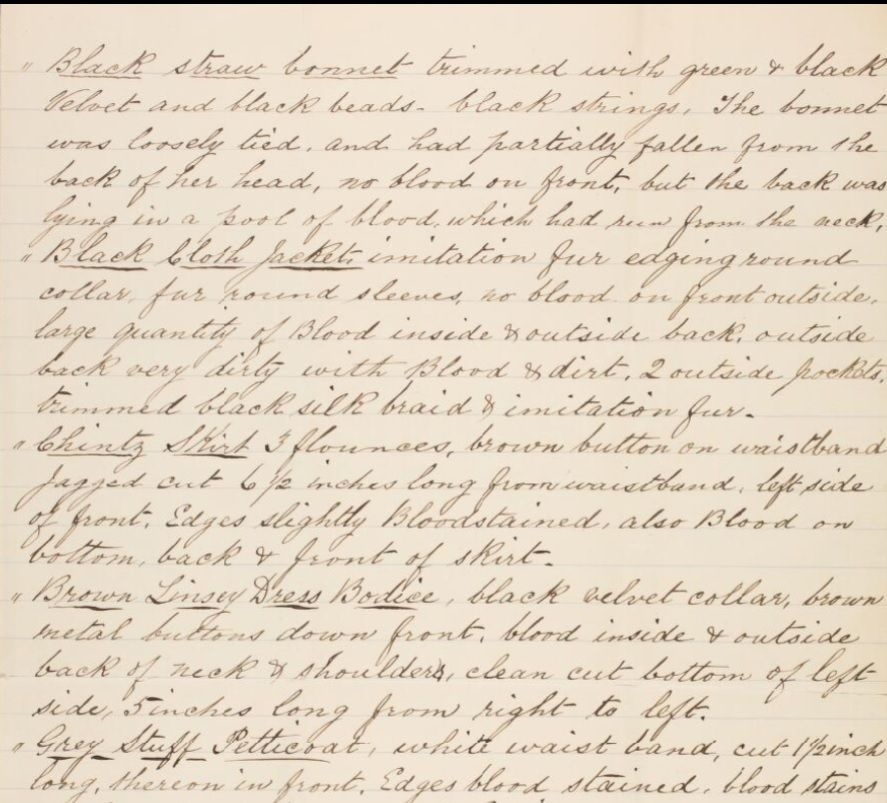 " Black straw bonnet trimmed with green & black
Velvet and black beads - black strings. The bonnet
was loosely tied, and had partially fallen from the
back of her head, no blood on front, but the back was
lying in a pool of blood, which had run from the neck.
" Black Cloth Jacket, imitation fur edging round
collar, fur round sleeves, no blood on front outside,
large quantity of Blood inside & outside back, outside
back very dirty with Blood & dirt, 2 outside pockets,
trimmed black silk braid & imitation fur.
" Chintz Skirt 3 flounces, brown button on waistband
Jagged cut 6 1/2 inches long from waistband, left side
of front, Edges slightly Bloodstained, also Blood on
bottom, back & front of skirt.
" Brown Linsey Dress Bodice, black velvet collar, brown
metal buttons down front, blood inside & outside
back of neck & shoulders, clean cut bottom of left
side, 5 inches long from right to left.
" Grey Stuff Petticoat, white waist band, cut 1 1/2 inch
long, thereon in front. Edges blood stained, blood stains